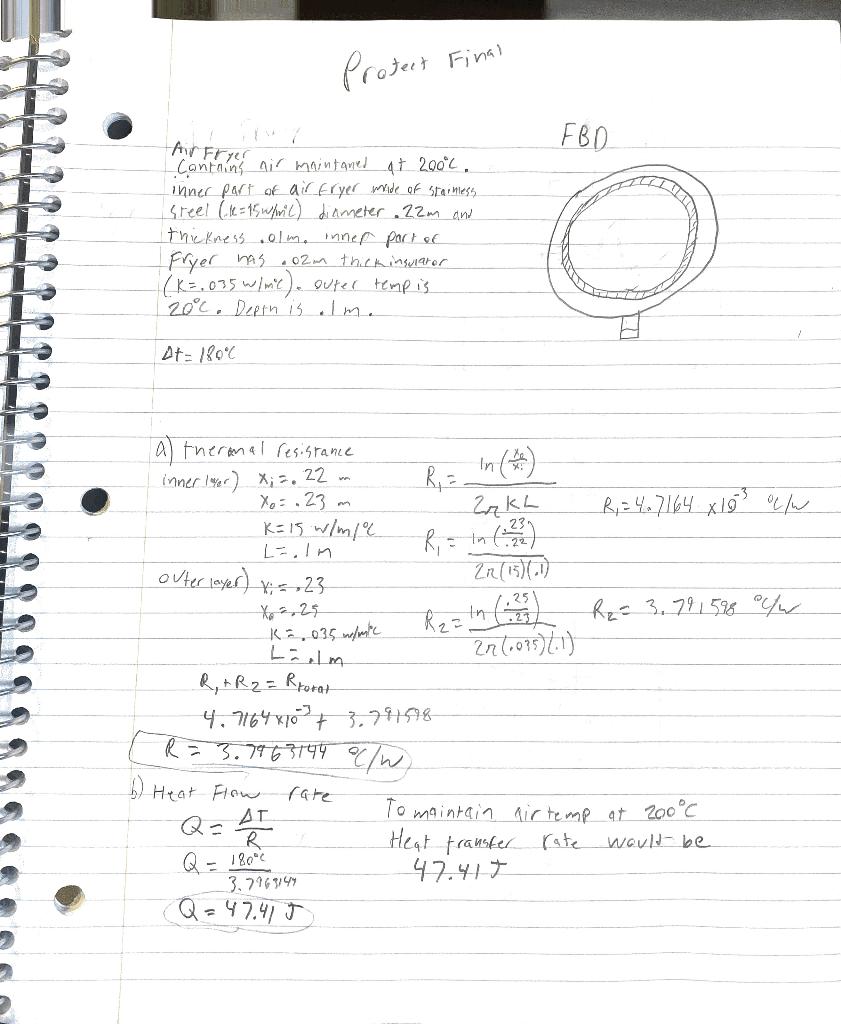 Project Final
FBD
Air Fryer
Contains air maintaned at 200°C.
inner part of air fryer made of stainless
steel (k=15w/m°C) diameter .22m and
thickness .01m. inner part of
Fryer has .02m thick insulator
(K=.035 w/m°C). outer temp is
20°C. Depth is .1m.
Δt= 180°C
a) thermal resistance
inner layer) Xi = .22 m
Xo = .23 m
K=15 w/m/°C
L=.1m
R₁ = ln(Xo/Xi) / 2πKL
R₁ = ln(.23/.22) / 2π(15)(.1)
R₁=4.7164 x10⁻³ °C/w
outer layer) Xi = .23
Xo = .25
K = .035 w/m°C
L = .1m
R₂ = ln(.25/.23) / 2π(.035)(.1)
R₂= 3.791598 °C/w
R₁+R₂ = Rtotal
4.7164x10⁻³ + 3.791598
R = 3.7963144 °C/w
b) Heat Flow rate
Q = ΔT/R
Q = 180°C/3.7963144
Q = 47.41 J
To maintain air temp at 200°C
Heat transfer rate would be
47.41 J